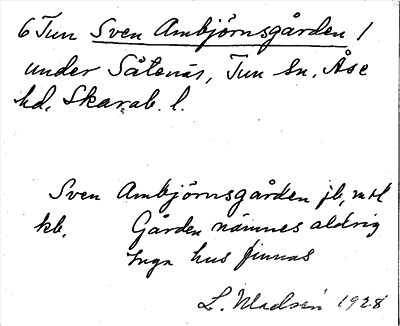 6 Tun Sven Ambjörnsgården /
under Såtenäs, Tun sn, Åse
hd, Skarab. l.
Sven Ambjörnsgården jb,
kb. Gården nämnes aldrig
Inga hus finnas
L. Madsén 1928